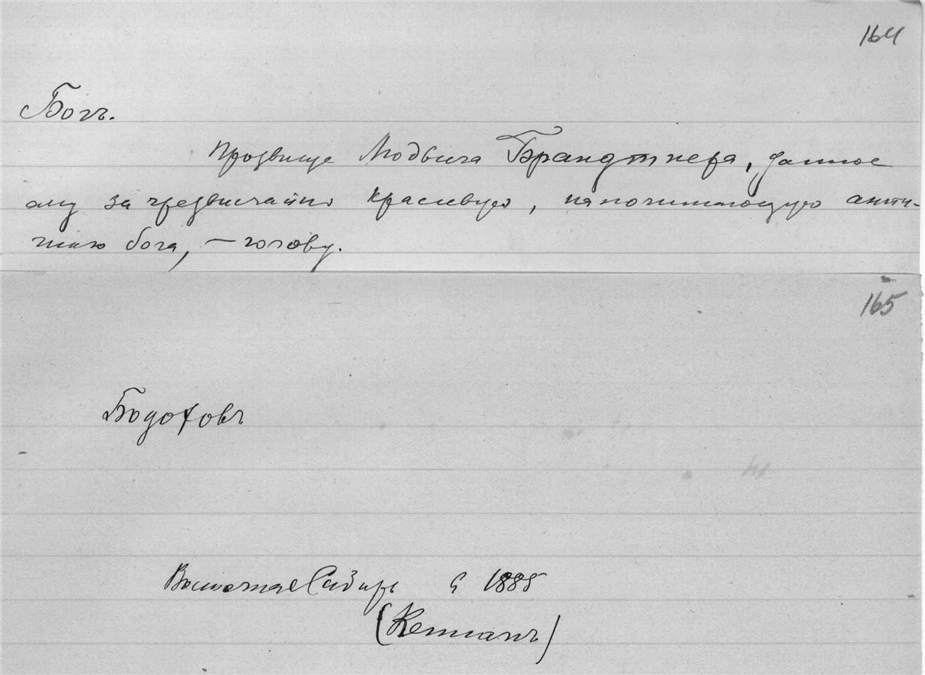 164
Богъ.
Прозвище Людвига Брандтнера, данное
ему за чрезвычайно красивую, напоминающую анти-
чнаго бога, — голову.
165
Бодоховъ
Восточная Сибирь 1885
(Кеннанъ)